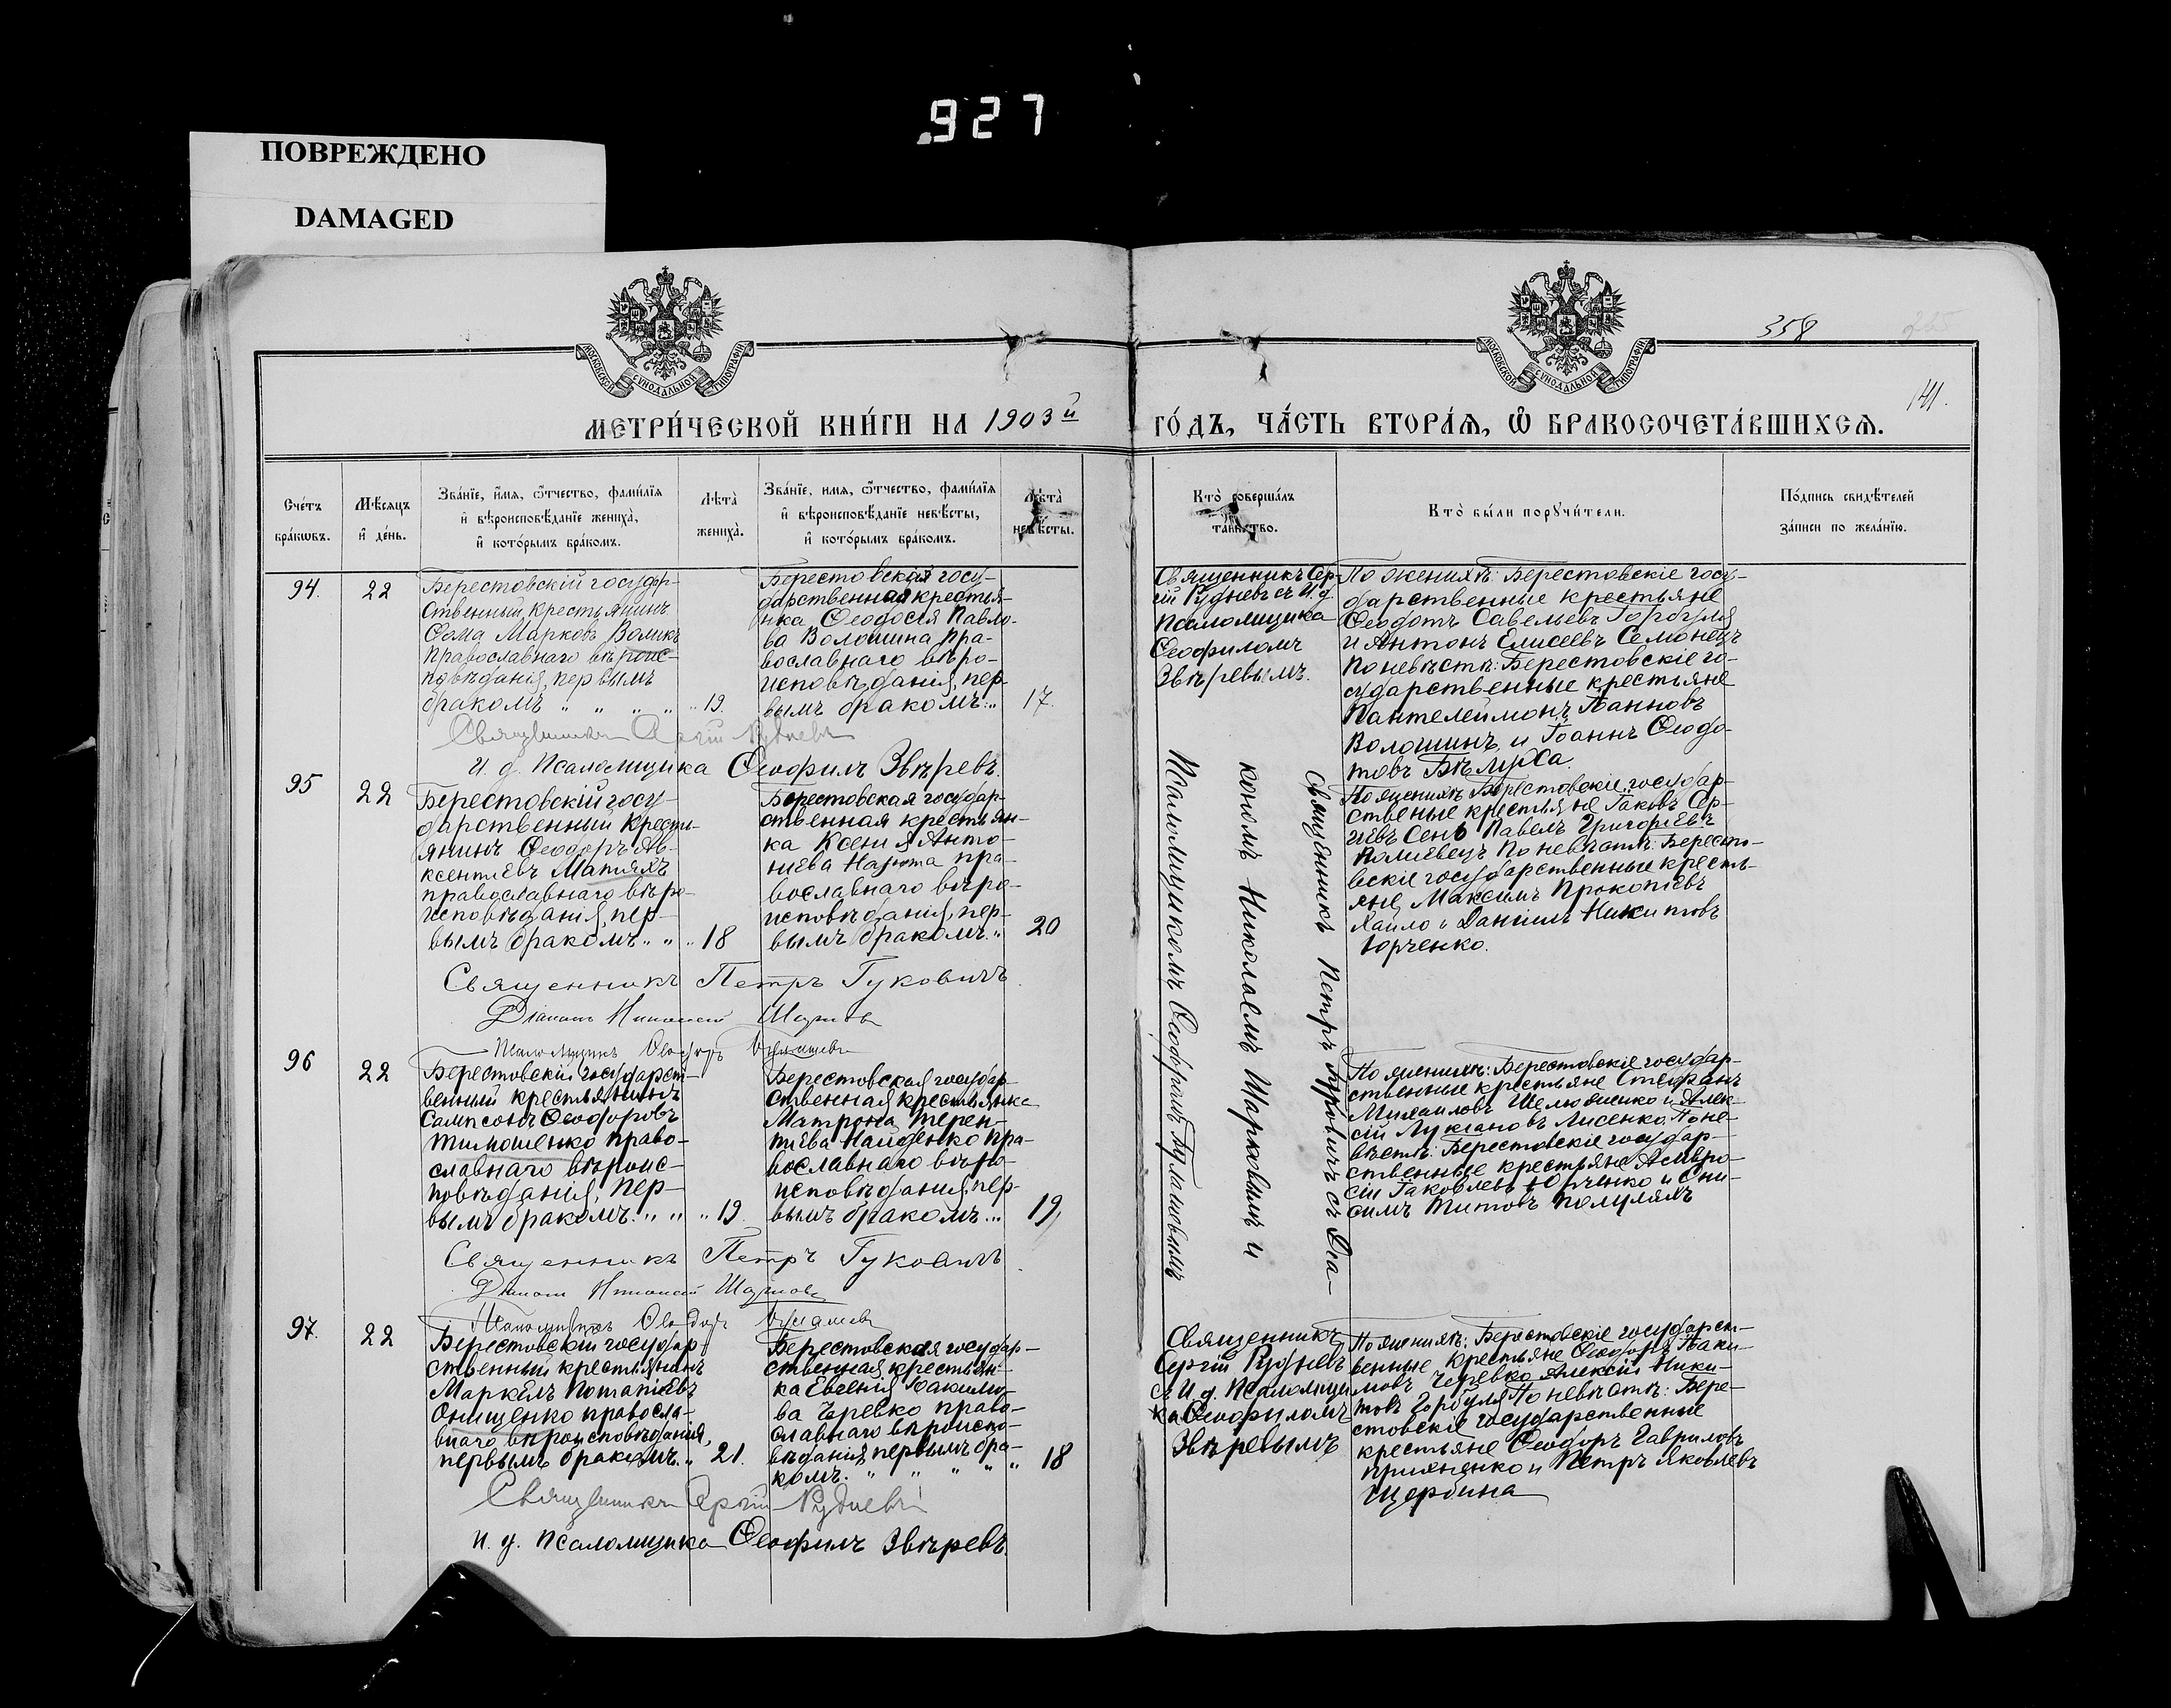 927
ПОВРЕЖДЕНО
DAMAGED
МОСКОВСКОЙ СУНОДАЛЬНОЙ ТИПОГРАФІИ
МОСКОВСКОЙ СУНОДАЛЬНОЙ ТИПОГРАФІИ
358
141.
МЕТРИ́ЧЕСКОЙ КНИ́ГИ НА 1903й ГО́ДЪ, ЧА́СТЬ ВТОРА́Я, Ѡ БРАКОСОЧЕТА́ВШИХСЯ.
Сче́тъ
бра́кѡвъ.
Мѣ́сяцъ
и҆ де́нь.
Зва́нїе, и҆́мя, ѻ҆́тчество, фами́лїя
и҆ вѣроисповѣ́данїе жениха̀,
и҆ кото́рымъ бра́комъ.
Лѣта̀
жениха̀.
Зва́нїе, имя, ѻ҆́тчество, фами́лїя
и҆ вѣроисповѣ́данїе невѣ́сты,
и҆ кото́рымъ бра́комъ.
Лѣта̀
невѣ́сты.
Кто̀ соверша́лъ
таинство.
Кто̀ бы́ли порꙋчи́тели.
По́дпись свидѣ́телей
за́писи по жела́нїю.
94.
22
Берестовскій государ-
ственный крестьянинъ
Ѳома Марковъ Воликъ
православнаго вѣроис-
повѣданія, первымъ
бракомъ " " " "
19.
Берестовская госу-
дарственная крестья-
нка Ѳеодосія Павло-
ва Волошина пра-
вославнаго вѣро-
исповѣданія, пер-
вымъ бракомъ."
17.
Священникъ Сер-
гій Рудневъ съ И. д.
Псаломщика
Ѳеофиломъ
Звѣревымъ.
По женихѣ: Берестовскіе госу-
дарственные крестьяне
Ѳеодотъ Савельевъ Горбуля
и Антонъ Елисеевъ Семонецъ
По невѣстѣ: Берестовскіе го-
сударственные крестьяне
Пантелеймонъ
Волошинъ, и Іоаннъ Ѳеодо-
товъ Бѣлуха.
Священникъ Сергій Рудневъ
И. д. Псаломщика Ѳеофилъ Звѣревъ.
95
22
Берестовскій госу-
дарственный кресть-
янинъ Ѳеодоръ Ав-
ксентіевъ Матяхъ
православнаго вѣро-
исповѣданія, пер-
вымъ бракомъ. " "
18
Берестовская государ-
ственная крестьян-
ка Ксенія Анто-
ніева пра-
вославнаго вѣро-
исповѣданія, пер-
вымъ бракомъ."
20
Священникъ Петръ Гуковичъ съ Діа-
кономъ Николаемъ Шарковымъ и
Псаломщикомъ
По женихѣ: Берестовскіе государ-
ственые крестьяне Іаковъ Сер-
гіевъ Сень Павелъ Григоріевъ
По невѣстѣ: Бересто-
вскіе государственные кресть-
яне Максимъ Прокопіевъ
Хайло и Даніилъ Никитовъ
Юрченко.
Священникъ Петръ Гуковичъ.
Діаконъ Николай
Псаломщикъ
96
22
Берестовскій государст-
венный крестьянинъ
Сампсонъ Ѳеодоровъ
Тимошенко право-
славнаго вѣроис-
повѣданія, пер-
вымъ бракомъ. " "
19.
Берестовская государ-
ственная крестьянка
Матрона Терен-
тіева Найденко пра-
вославнаго вѣро-
исповѣданія, пер-
вымъ бракомъ."
19,
По женихѣ: Берестовскіе государ-
ственные крестьяне Стефанъ
Михаиловъ и Алек-
сій Лукіановъ Лисенко. По не-
вѣстѣ: Берестовскіе государ-
ственные крестьяне Амвро-
сій Іаковлевъ Юрченко и Они-
симъ Титовъ Полуляхъ
Священникъ Петръ Гуковичъ.
Діаконъ Николай
Псаломщикъ
97.
22
Берестовскій государ-
ственный крестьянинъ
Маркелъ Потапіевъ
Онищенко правосла-
внаго вѣроисповѣданія,
первымъ бракомъ."
21.
Берестовская государ-
ственная крестьян-
ка Евгенія
ва Черевко право-
славнаго вѣроиспо-
вѣданія первымъ бра-
комъ. " " " "
18
Священникъ
Сергій Рудневъ
съ И. д. Псаломщи
ка Ѳеофиломъ
Звѣревымъ
По женихѣ: Берестовскіе государст-
венные крестьяне Ѳеодоръ Іаки-
мовъ Черевко Алексій Ники-
товъ Горбуля По невѣстѣ: Бере-
стовскіе государственные
крестьяне Ѳеодоръ Гавриловъ
и Петръ Яковлевъ
Щербина
Священникъ Сергій Рудневъ
И. д. Псаломщика Ѳеофилъ Звѣревъ.